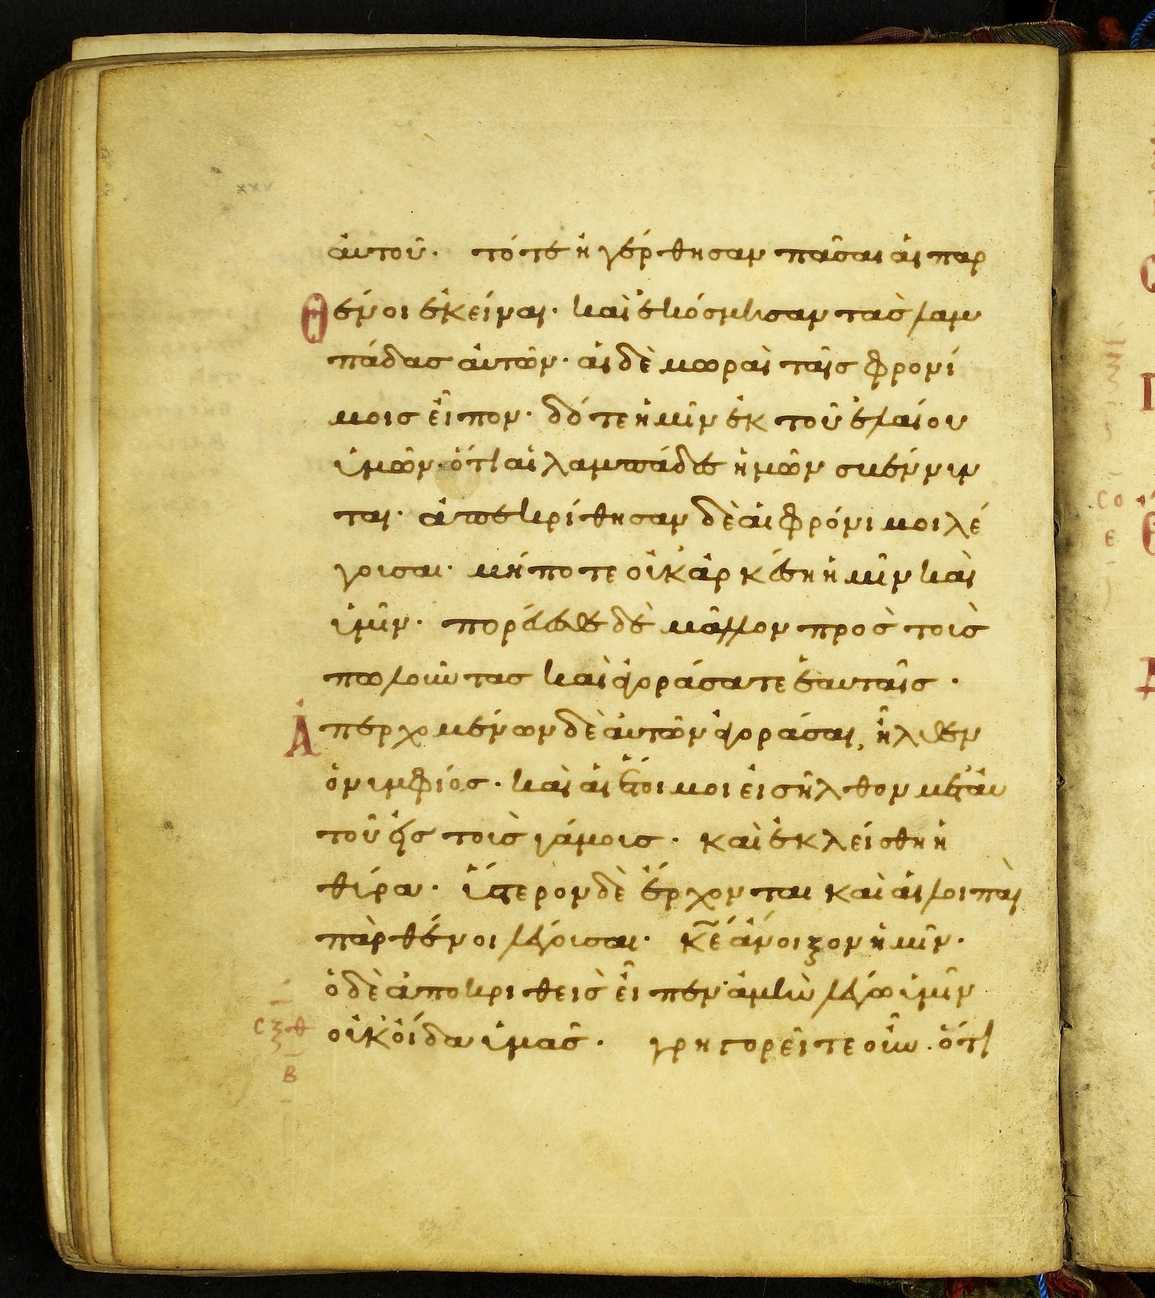 ἀυτοῦ· τότε ἠγέρθησαν πᾶσαι ἁι παρ
θένοι ἐκείναι· καὶ ἐκόσμησαν τὰσ λαμ
πάδασ ἁυτῶν· ἁι δὲ μωραὶ ταῖσ φρονί
μοισ εἶπον· δότε ἡμῖν ἐκ τοῦ ἐλαίου
ὑμῶν· ὅτι αἱ λαμπάδες ἡμῶν σβέννυν
ται· ἀπεκρίθησαν δὲ ἁι φρόνιμοι λέ
γουσαι· μήποτε οὐκ ἀρκέση ἡμῖν καὶ
ὑμῖν· πορέυεσθε δὲ μᾶλλον πρὸσ τοὺσ
πωλοῦντασ καὶ ἀγοράσατε ἑαυταῖσ·
Ἀπερχομένων δὲ ἀυτῶν ἀγοράσαι, ἦλθεν
ὁ νυμφίοσ· καὶ ἁι ἕτοιμοι ἐισῆλθον μετ ἀυ
τοῦ ἐισ τοὺσ γάμουσ· καὶ ἐκλείσθη ἡ
θύρα· ὕστερον δὲ ἔρχονται καὶ ἁι λοιπαὶ
πὰρθένοι λέγουσαι· κ̅ε̅ κ̅ε̅ ἄνοιξον ἡμῖν·
ὁ δὲ ἀποκριθεὶσ εἶπεν· ἀμὴν λέγω ὑμῖν
οὐκ ὄιδα ὑμᾶσ· γρηγορεῖτε οὖν· ὅτι
Β